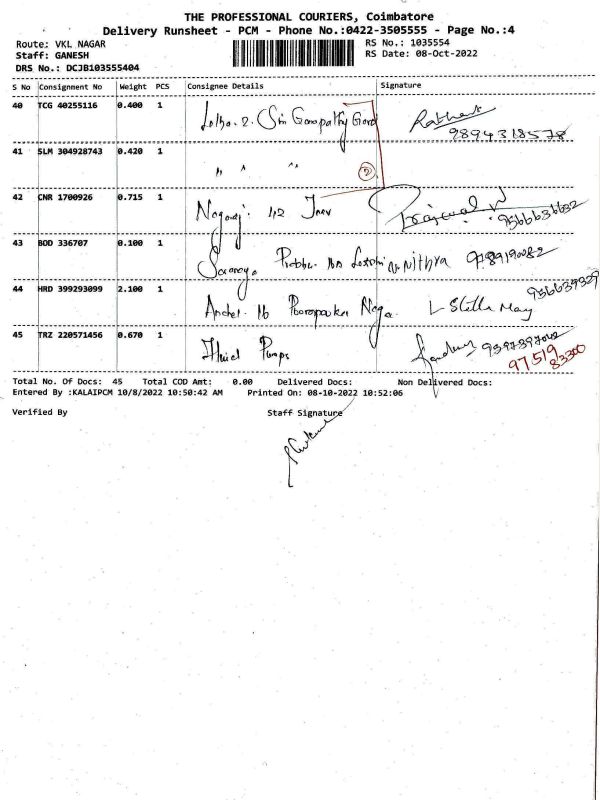 THE PROFESSIONAL COURIERS, Coimbatore
Delivery Runsheet - PCM - Phone No.:0422-3505555 - Page No.:4
Route: VKL NAGAR
RS No.: 1035554
Staff: GANESH
RS Date: 08-Oct-2022
DRS No.: DCJB103555404
S No Consignment No Weight PCS Consignee Details Signature
40 TCG 40255116 0.400 1
9894318578
41 SLM 304928743 0.420 1 " " "
2
42 CNR 1700926 0.715 1 Nagaraj. 42
9566636632
43 BOD 336707 0.100 1 Nithya
44 HRD 399293099 2.100 1 L Stella Mary
45 TRZ 220571456 0.670 1 Fluid Pumps
97519
83300
Total No. Of Docs: 45 Total COD Amt: 0.00 Delivered Docs: Non Delivered Docs:
Entered By :KALAIPCM 10/8/2022 10:50:42 AM Printed On: 08-10-2022 10:52:06
Verified By Staff Signature